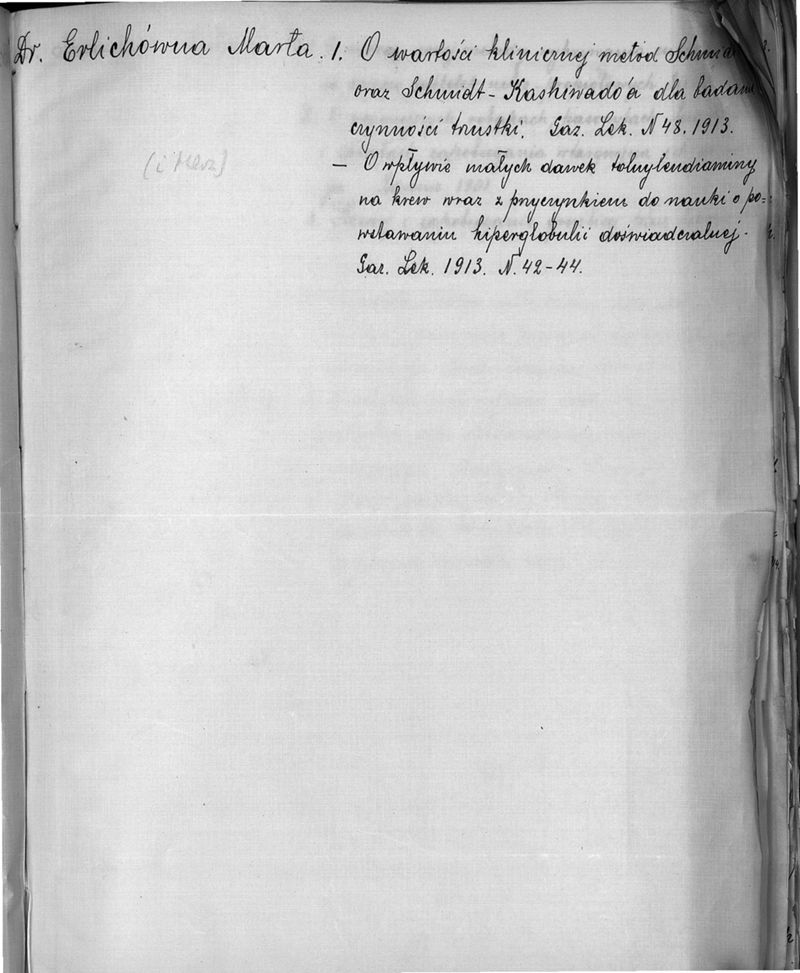 Dr. Erlichówna Marta. 1. O wartości klinicznej metod Schmid
oraz Schmidt-Kashiwado'a dla badani
czynności trzustki. Gaz. Lek. N 48. 1913.
— O wpływie małych dawek toluylendiaminy
na krew wraz z przyczynkiem do nauki o po-
wstawaniu hiperglobulii doświadczalnej.
Gaz. Lek. 1913. N. 42-44.